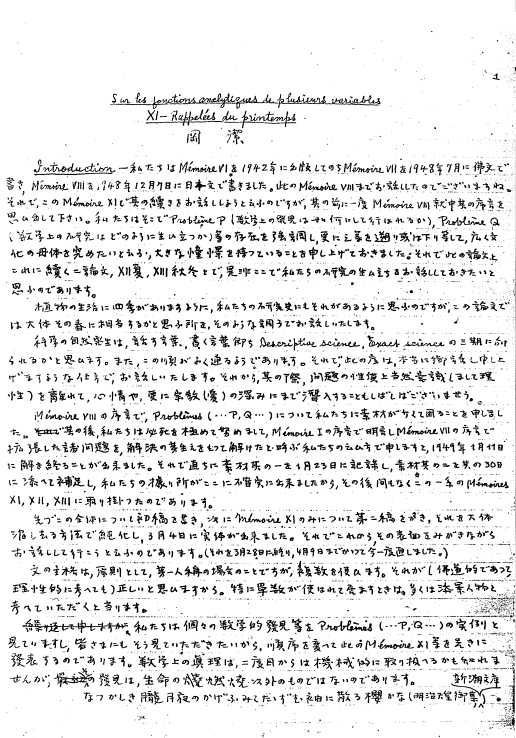 1
Sur les fonctions analytiques de plusieurs variables
XI — Rappelées du printemps.
岡 潔
Introduction — 私たちは Mémoire VI を 1942年に出版してのち Mémoire VII を 1948年7月に佛文で
書き, Mémoire VIII を, 1948年12月7日に日本文で書きました。此の Mémoire VIII までお話したのでございますね。
それで, この Mémoire XI で其の続きをお話ししようと云ふのですが, 其の前に一度 Mémoire VIII 就中其の序言を
思ひ出して下さい。私たちはそこで Problème P (数学上の発見は如何にして行はれるか), Problème Q
(数学上の研究はどのように生ひ立つか) 等の存在を強調し, 更に之等を遡り或は下り等して, 広く文
化の母体を究めたいと云ふ, 大きな憧憬を持っていることを申し上げておきました。それで此の論文と
これに続く二論文, XII 夏, XIII 秋冬とで, 実际ここで私たちの研究の生ひ立ちをお話しておきたいと
思ふのであります。
植物の生活に四季がありますように, 私たちの研究史にもそれがあるように思ふのですが, この論文で
は大体その春に相当すると思ふ所を, そのような調子でお話しいたします。
科学の自然発生は, 話す言葉, 書く言葉 即ち Descriptive science, Exact science の三期に分
られるかと思ひます。また, この順がよく通るようであります。それで此の度は, 本当に御話し申し上
げますような仕方で, お話しいたします。それから, 其の際, 問題の性質上当然意識 (まして理
性) を離れて, 心情や, 更に宗教 (愛) の深みにまで潜入することもしばしばございませう。
Mémoire VIII の序言で, Problèmes (…P, Q…) について私たちに素材が少くて困ることを申しまし
た。其の後, 私たちは必死を極めて努めまして, Mémoire I の序言で明言し Mémoire VII の序言で
拡張した諸問題を, 解決の芽生えをもって解けたと呼ぶ私たちの云ひ方で申しますと, 1949年1月11日
に解き終ることが出来ました。それで直ちに素材其の一を1月23日に記録し, 素材其の二を其の30日
に添へて補足し, 私たちの據り所がここに確実に出来ましたから, その後間もなくこの一系の Mémoires
XI, XII, XIII に取り掛ったのであります。
そしてこの全体について初稿を書き, 次に Mémoire XI のみについて第二稿を書き, それを大体
縮しれる方法で純化し, 3月14日に実体が出来ました。それでこれから, その表面をみがきながら
お話ししして行こうと云ふのであります。(それを3月28日に終り, 4月9日までかけて今一度直しました。)
文の主格は, 原則として, 第一人称の場合のことですが, 複数を使ひます。それが (佛道的であって
理性的に考へても) 正しいと思ひますから。特に単数が使はれて来ますときは, 多くは添景人物と
考へていただくと当ります。
私たちは個々の数学的発見等を Problèmes (…P, Q…) の実例と
見ていますし, 皆さまにもそう見ていただきたいから, 順序を変って此の Mémoire XI 等を先きに
発表するのであります。数学上の真理は, 二度目からは機械的に取り扱へるかも知れま
せんが, 発見は, 生命の燃焼以外のものではないのであります。 新潮文庫
なつかしき朧月夜のかげふみてたいずも袖に散る櫻かな (明治天皇御集)